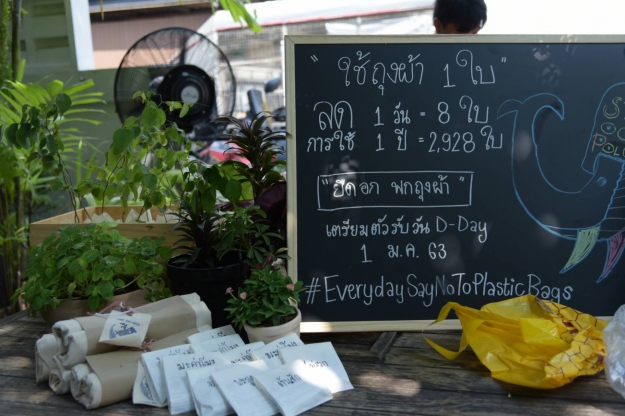 " ใช้ถุงผ้า 1 ใบ "
ลด 1 วัน = 8 ใบ
การใช้ 1 ปี = 2,928 ใบ
"ยืดอก พกถุงผ้า"
เตรียมตัวรับวัน D-Day
1 ม.ค. 63
#EverydaySayNoToPlasticBags